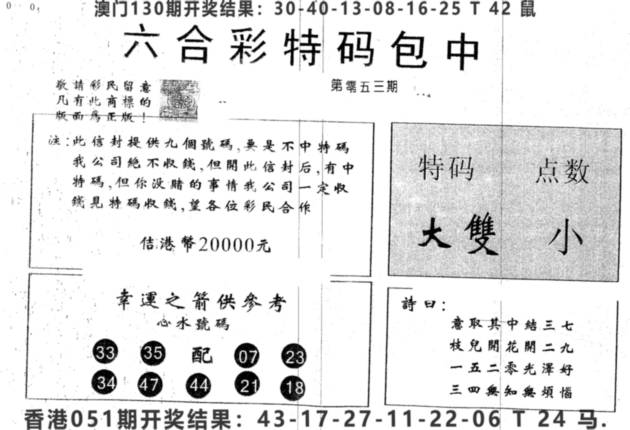 澳门130期开奖结果：30-40-13-08-16-25 T 42 鼠
六合彩特码包中
第零五三期
敬請彩民留意
凡有此商標的
版面為正版！
注:此信封提供九個號碼,要是不中特碼
我公司絕不收錢,但開此信封后,有中
特碼,但你没賭的事情我公司一定收
錢見特碼收錢,望各位彩民合作
佶港幣20000元
特码 点数
大雙 小
幸運之箭供參考
心水號碼
33 35 配 07 23
34 47 44 21 18
詩曰：
意取其中結三七
枝兒開花開二九
一五二零光澤好
三四無知無煩惱
香港051期开奖结果：43-17-27-11-22-06 T 24 马.